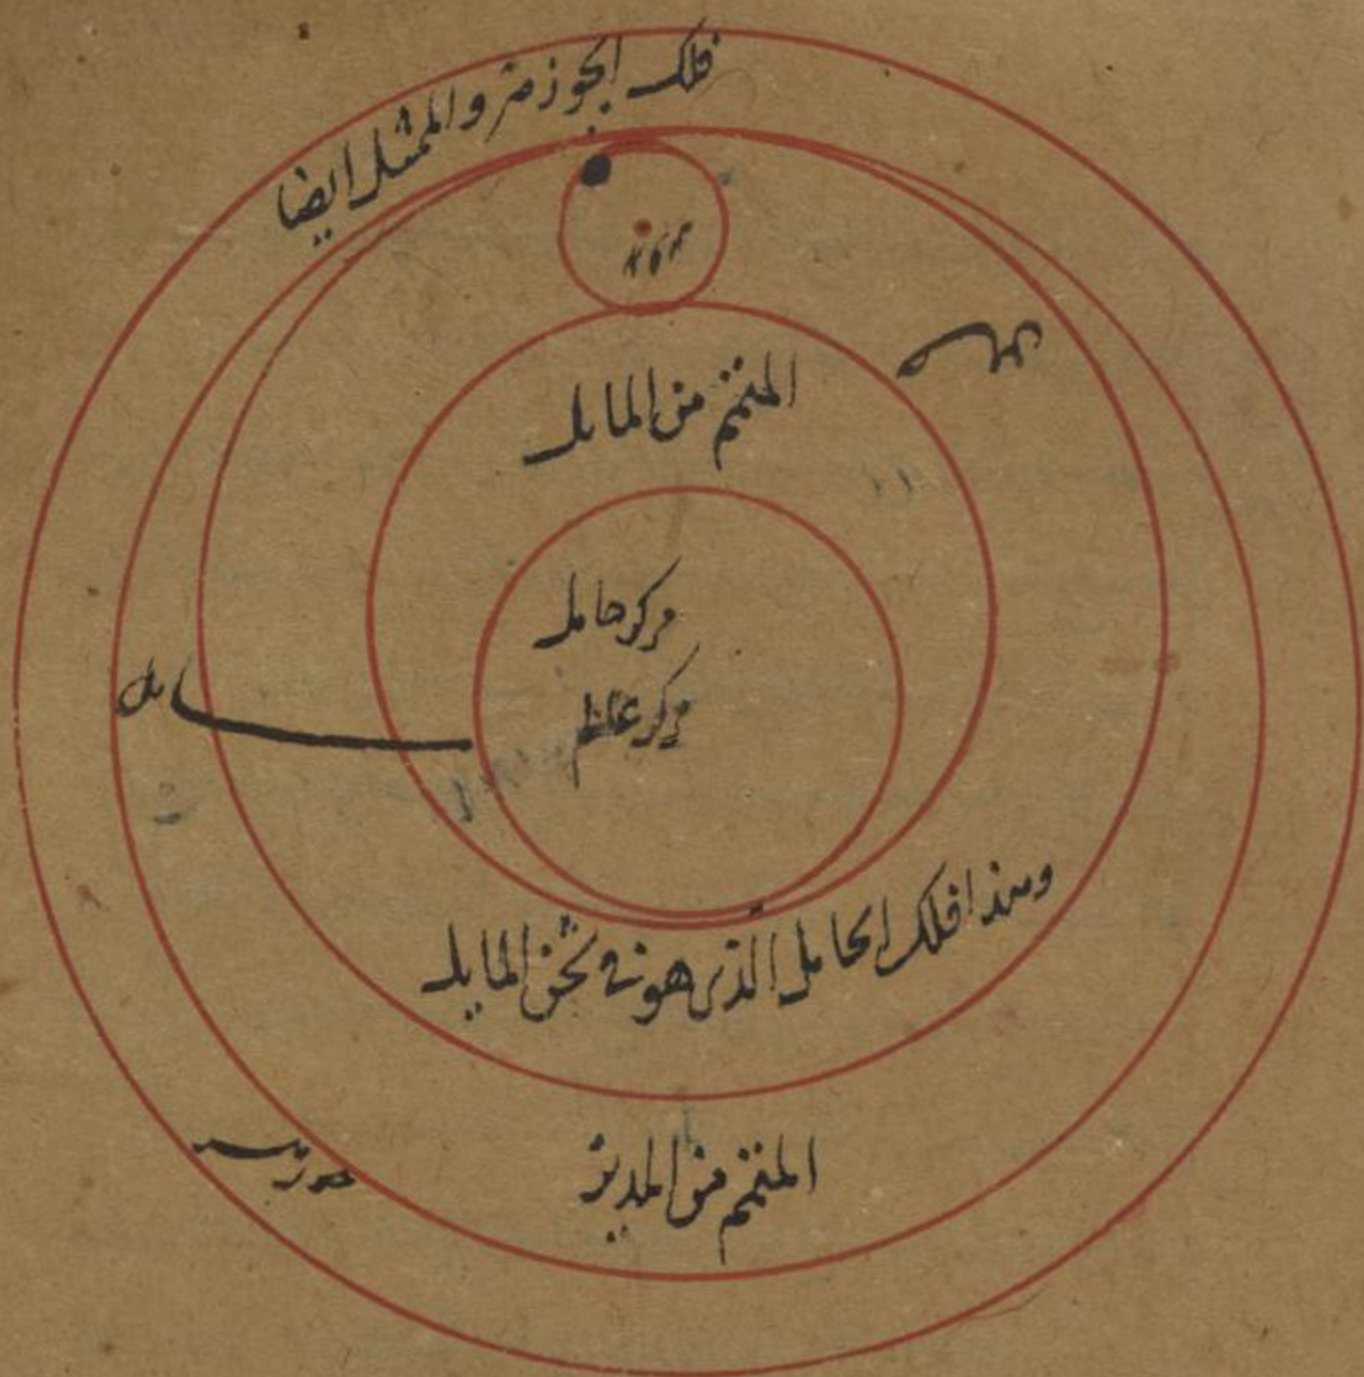 فلك الجوزهر والممثل ايضا
المتمم من المايل
مركز حامل
مركز عالم
مايل
وهذا فلك الحامل الذي هو في ثخن المايل
المتمم من المدير